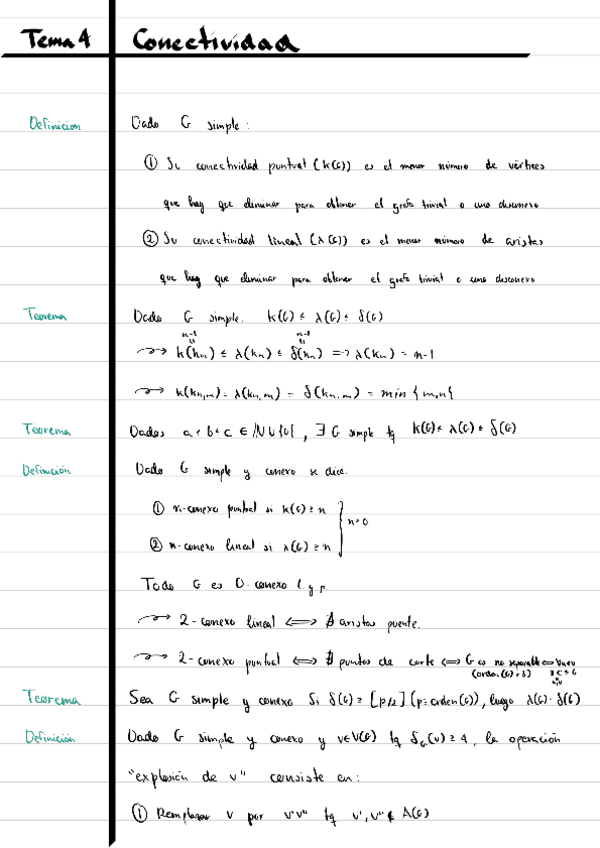 Tema 4 Conectividad
Definición Dado G simple:
① Su conectividad puntual (k(G)) es el menor número de vértices
que hay que eliminar para obtener el grafo trivial o uno disconexo
② Su conectividad lineal (λ(G)) es el menor número de aristas
que hay que eliminar para obtener el grafo trivial o uno disconexo
Teorema Dado G simple. k(G) ≤ λ(G) ≤ δ(G)
n-1 n-1
k(kn) ≤ λ(kn) ≤ δ(kn) => λ(kn) = n-1
k(kn,m) = λ(kn,m) = δ(kn,m) = min {m,n}
Teorema Dados a ≤ b ≤ c ∈ IN U {0}, ∃ G simple tq k(G) ≤ λ(G) ≤ δ(G)
Definición Dado G simple y conexo se dice:
① n-conexo puntual si k(G) ≥ n
n>0
② n-conexo lineal si λ(G) ≥ n
Todo G es 0-conexo l. y p.
2-conexo lineal <=> ∄ aristas puente.
2-conexo puntual <=> ∄ puntos de corte <=> G es no separable <=>
(orden(G)≥3)
Teorema Sea G simple y conexo Si δ(G) ≥ [p/2] (p=orden(G)), luego λ(G) = δ(G)
Definición Dado G simple y conexo y v∈V(G) tq δG(v) ≥ 4, la operación
"explosión de v" consiste en:
① Remplazar v por v'v'' tq v', v'' ∉ A(G)